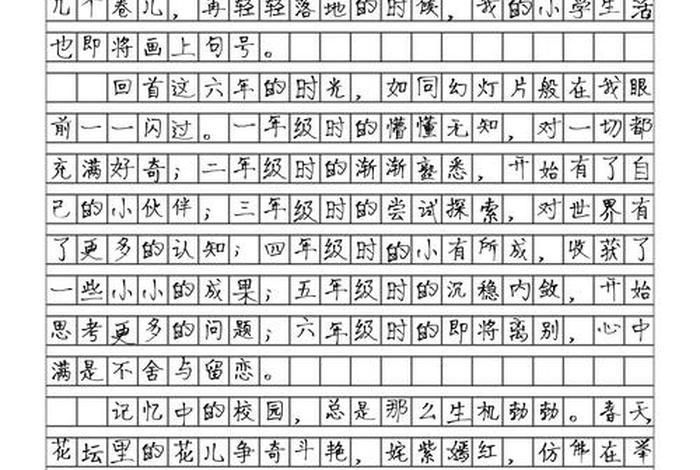 几个卷儿，再轻轻落地的时候，我的小学生活
也即将画上句号。
回首这六年的时光，如同幻灯片般在我眼
前一一闪过。一年级时的懵懂无知，对一切都
充满好奇；二年级时的渐渐熟悉，开始有了自
己的小伙伴；三年级时的尝试探索，对世界有
了更多的认知；四年级时的小有所成，收获了
一些小小的成果；五年级时的沉稳内敛，开始
思考更多的问题；六年级时的即将离别，心中
满是不舍与留恋。
记忆中的校园，总是那么生机勃勃。春天，
花坛里的花儿争奇斗艳，姹紫嫣红，仿佛在举